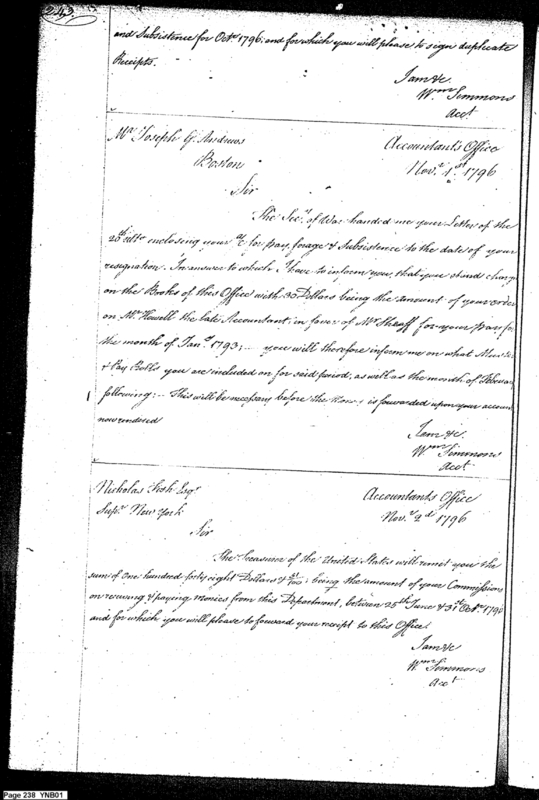 242
and Subsistence for Octr. 1796, and for which you will please to sign duplicate
Receipts.
I am &c.
Wm. Simmons
Acct.
Mr. Joseph G. Andrews
Boston
Accountant's Office
Novr. 1st 1796
Sir
The Secy. of War handed me your Letter of the
25th ulto. enclosing your a/c for pay, forage & Subsistence to the date of your
resignation. In answer to which I have to inform you, that you stand charg
on the Books of this Office with 30 Dollars being the amount of your order
on Mr. Howell the late Accountant, in favor of Mr. Sheaff for your pay for
the month of Jany. 1793,— you will therefore inform me on what Muster
& Pay Rolls you are included on for said period, as well as the month of Februa
following:— This will be necessary before the money is forwarded upon your account
now rendered
I am &c.
Wm. Simmons
Acct.
Nicholas Fish Esqr.
Supr. New York
Accountant's Office
Novr. 2d. 1796
Sir
The Treasurer of the United States will remit you the
sum of One hundred forty eight Dollars & /100; being the amount of your Commissions
on receiving & paying monies from this Department, between 25th June & 31st Octr. 1796
and for which you will please to forward your receipt to this Office.
I am &c
Wm. Simmons
Acct.
Page 238 YNB01